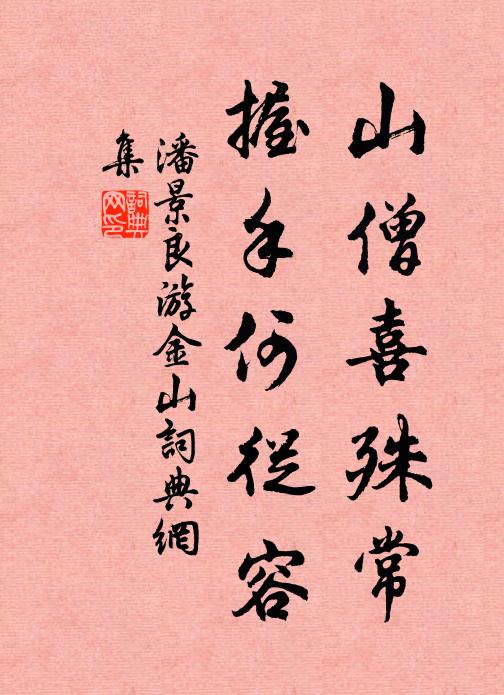 山僧喜殊常
握手何從容
潘景良游金山詞典網
集
詞典
网印